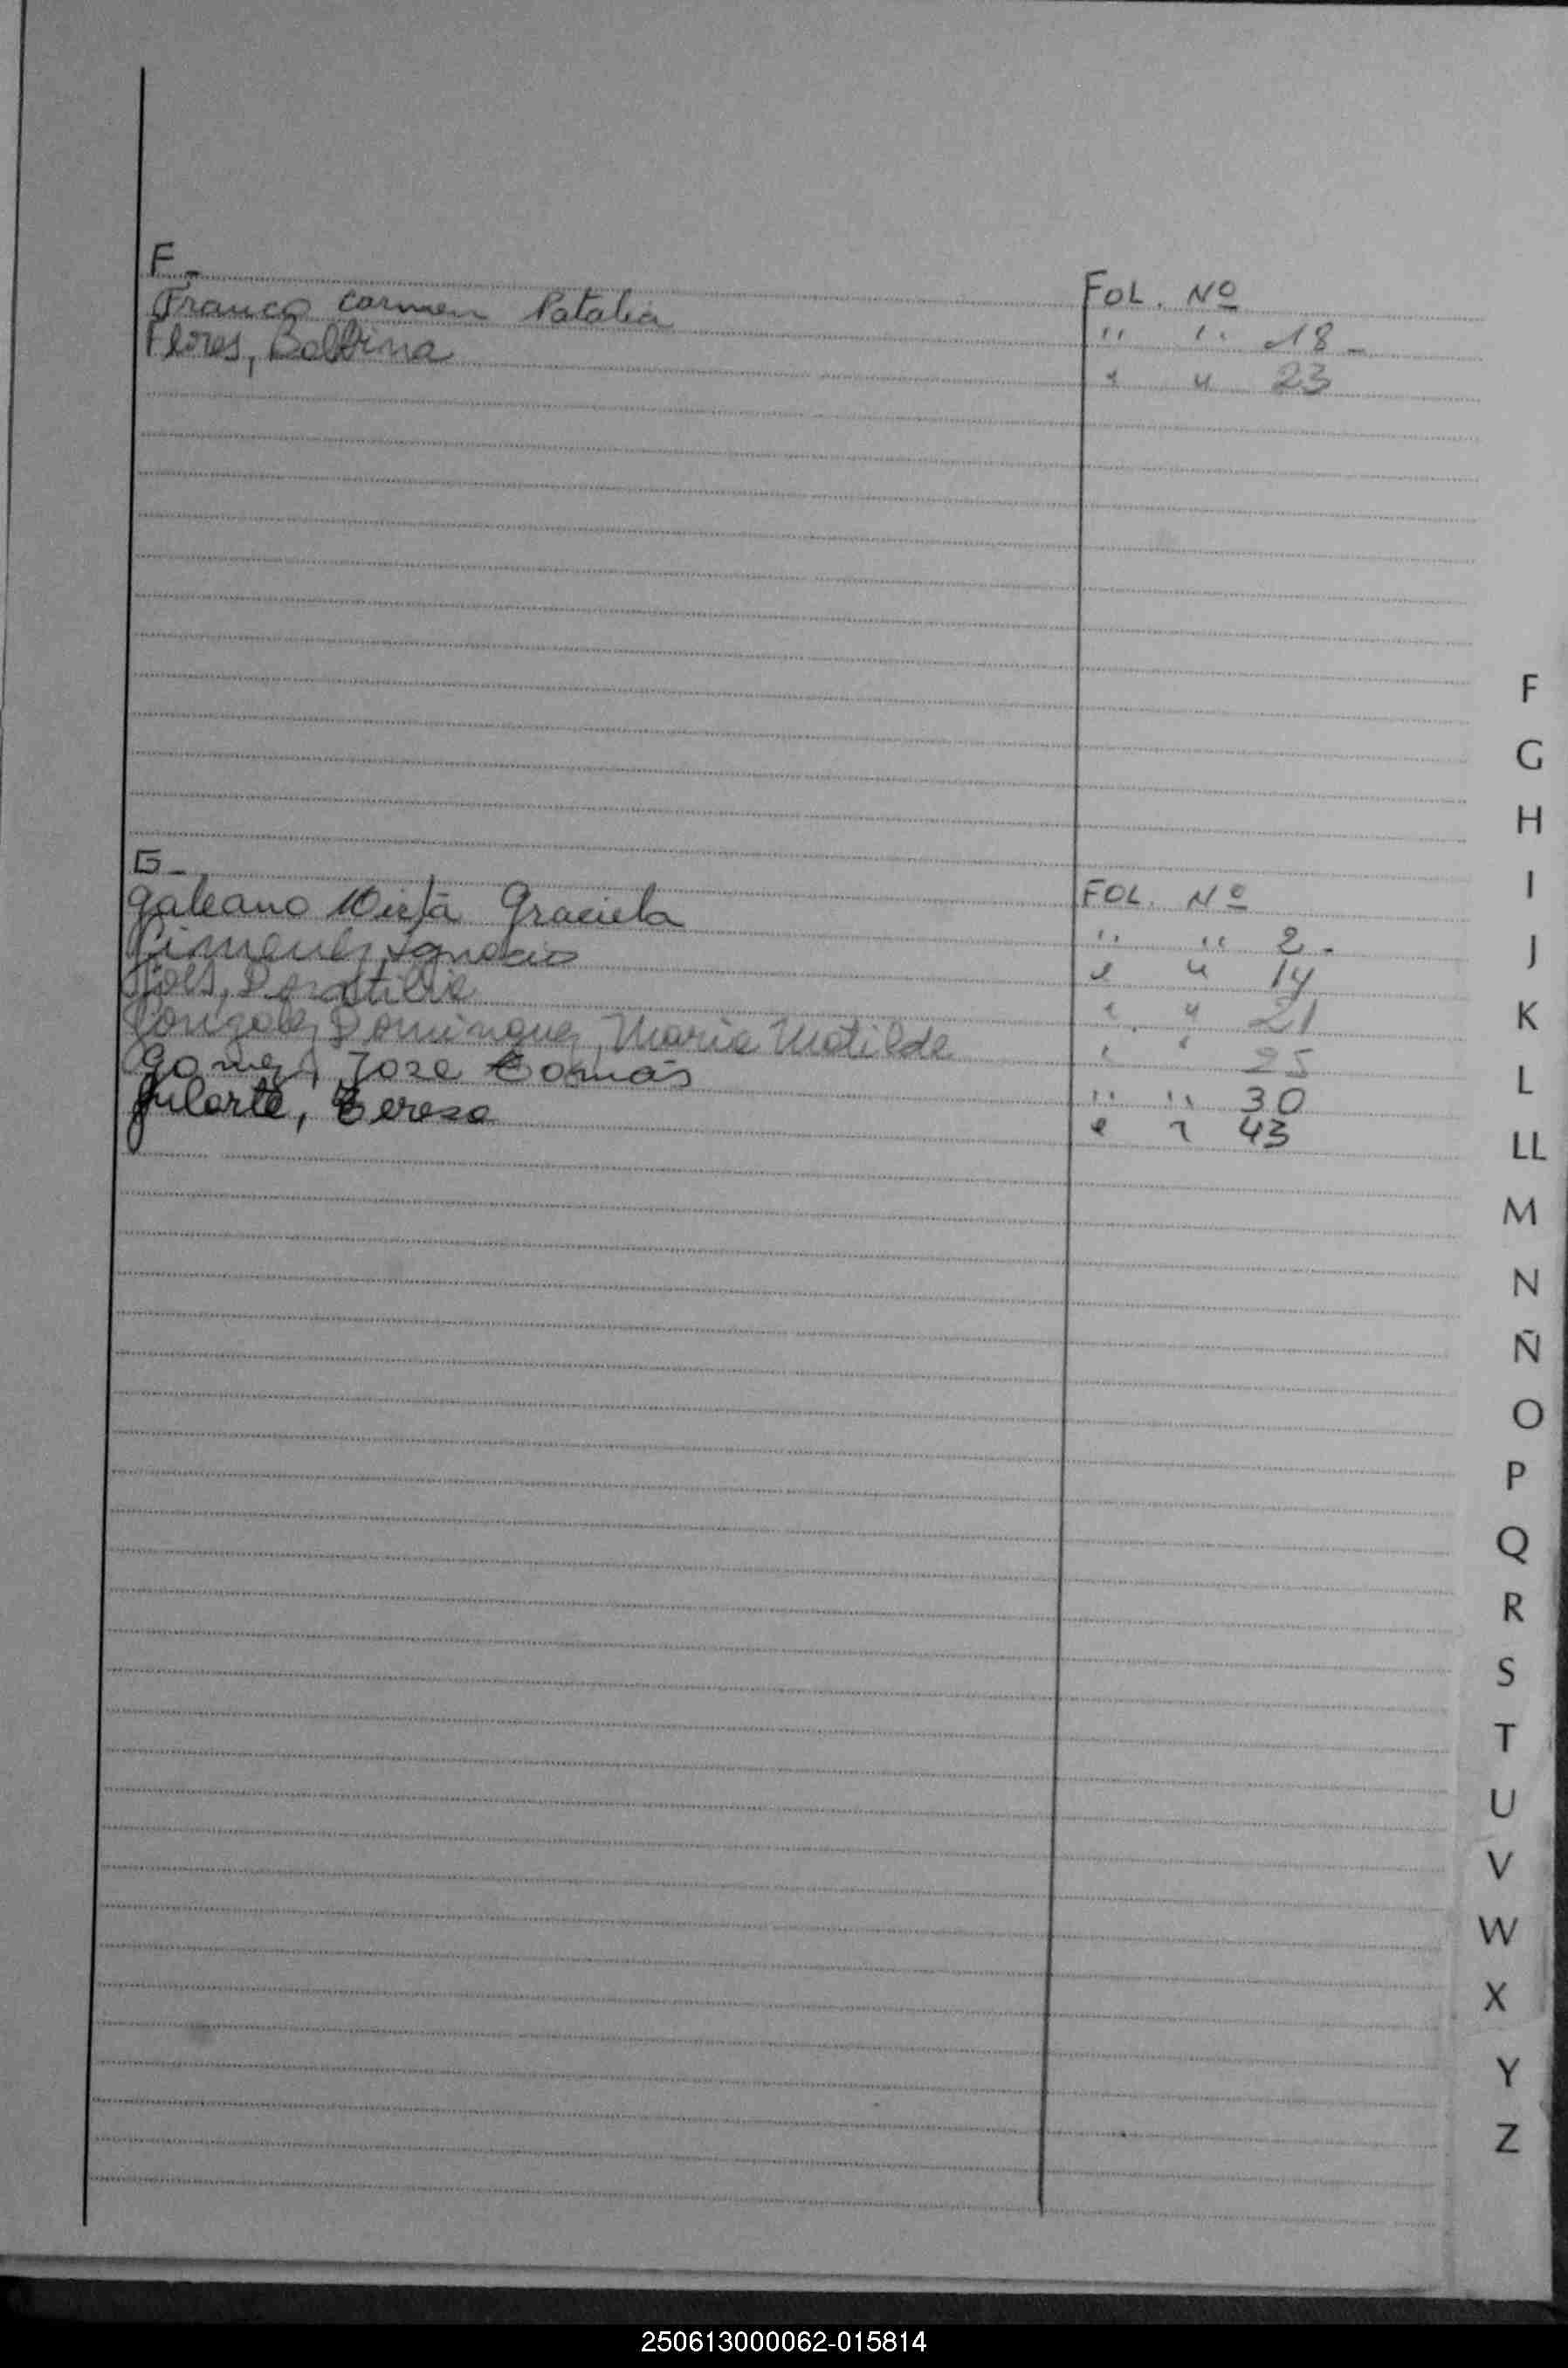 F_
FOL. Nº
Franco Carmen Natalia " " 18_
Flores, Balbina " " 23
G_
FOL. Nº
Galeano Graciela " " 2.
Gimenez, Ignacio " " 14
" " 21
Gonzalez Dominguez, Maria Matilde " " 25
Gomez, Jose Tomás " " 30
Gularte, Teresa " " 43
F
G
H
I
J
K
L
LL
M
N
Ñ
O
P
Q
R
S
T
U
V
W
X
Y
Z
250613000062-015814